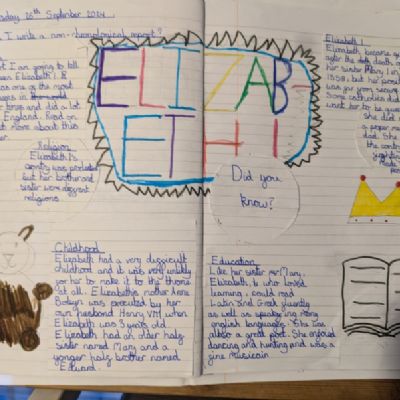 sday 26th September 2024
I write a non-chronological report?
I am going to tell
Elizabeth I &
was one of the most
in
kings and did a lot
England. Read on
more about this
Religion
Elizabeth's
country was
but her
sister were different
religions
Childhood
Elizabeth had a very difficult
childhood and it was very unlikely
for her to make it to the throne
at all. Elizabeths mother Anne
Boleyn was executed by her
own husband Henry VIII when
Elizabeth was 3 years old
Elizabeth had an older half
sister named Mary and a
younger half brother named
Edward.
ELIZAB-
ETH I
Did you
know?
Elizabeth I
Elizabeth became q
after the death of
her sister Mary I in
1558, but her posit
was far from secure
Some catholics did
want her to be que
She did
a proper
dad. She
the
Education
Like her sister Mary,
Elizabeth I, who loved
learning, could read
Latin and Greek fluently
as well as speaking many
english languages. She was
also a great poet. She enjoyed
dancing and hunting and was a
fine musicain